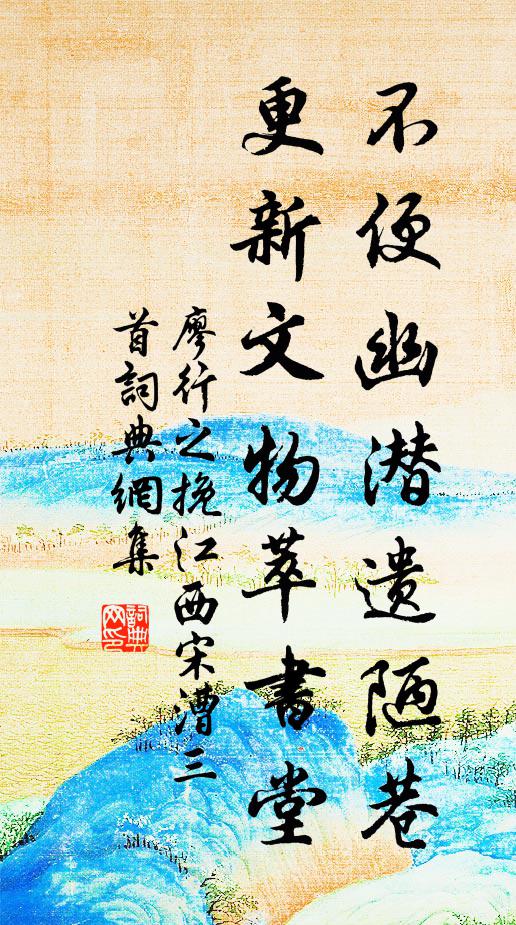 不便幽潜遗陋巷
更新文物萃書堂
廖行之挽江西宋漕三
首詞典網集
詞典
网印